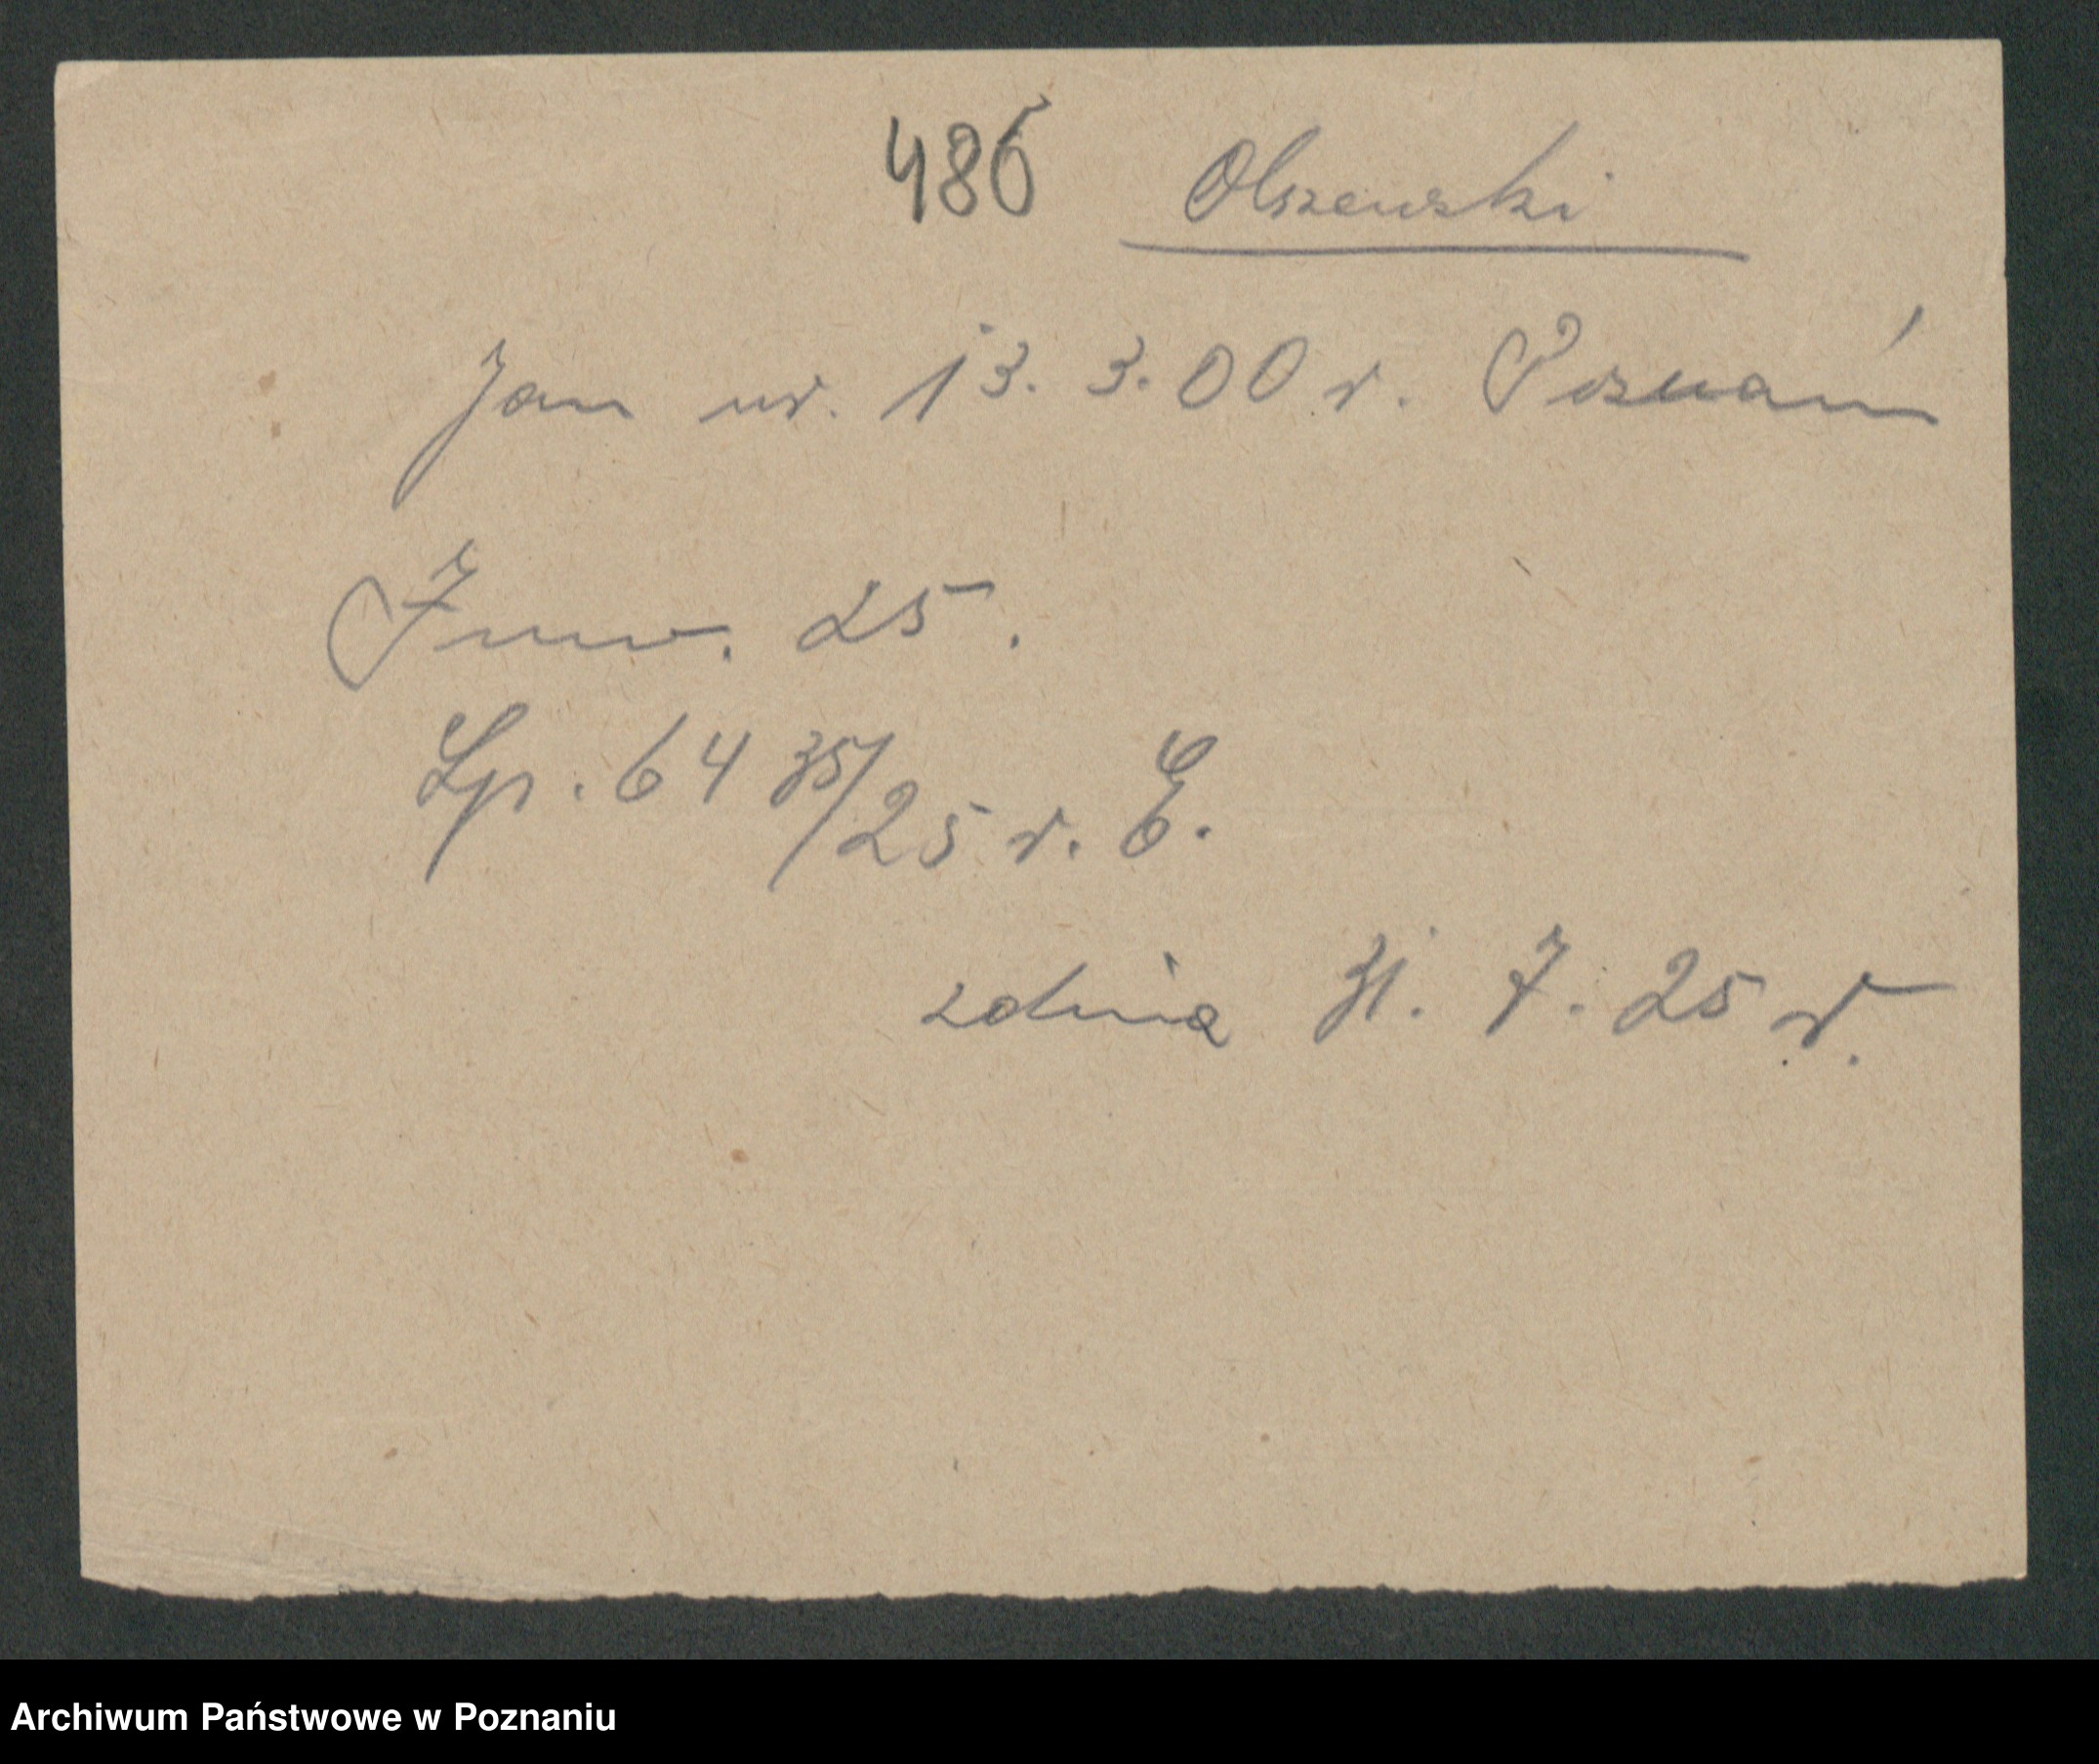 486 Olszewski
Jan ur. 13. 3. 00 r. Poznań
Inw. 25.
Lp. 64 35/25 r. E.
z dnia 31. 7. 25 r.
Archiwum Państwowe w Poznaniu